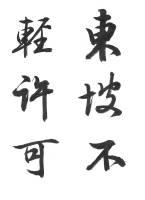 東坡不
輕許可